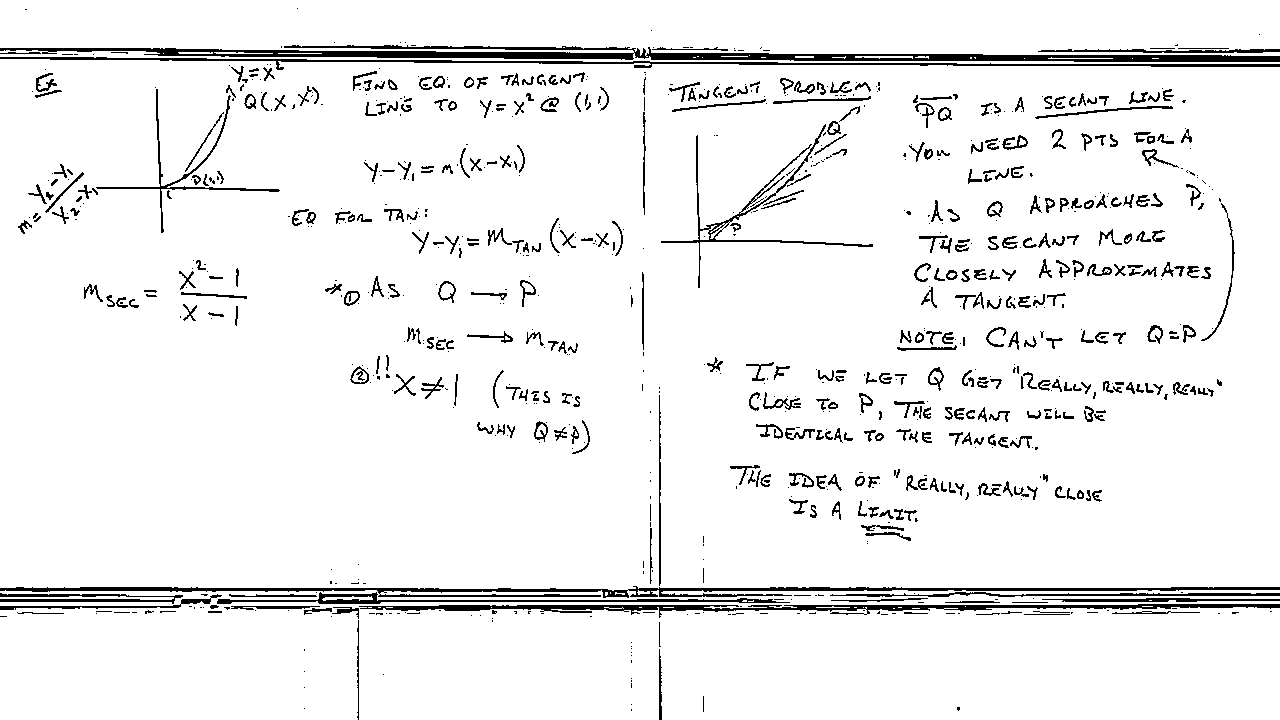 Ex
y=x²
Q(x,x²)
P(1,1)
m = y₂-y₁ / x₂-x₁
m_SEC = x²-1 / x-1
FIND EQ. OF TANGENT
LINE TO y=x² @ (1,1)
y-y₁=m(x-x₁)
EQ FOR TAN:
y-y₁=m_TAN(x-x₁)
*① AS Q → P
m_SEC → m_TAN
② !! x≠1 (THIS IS
WHY Q≠P)
TANGENT PROBLEM:
Q
P
PQ IS A SECANT LINE.
·YOU NEED 2 PTS FOR A
LINE.
· AS Q APPROACHES P,
THE SECANT MORE
CLOSELY APPROXIMATES
A TANGENT.
NOTE: CAN'T LET Q=P
* IF WE LET Q GET "REALLY, REALLY, REALLY"
CLOSE TO P, THE SECANT WILL BE
IDENTICAL TO THE TANGENT.
THE IDEA OF "REALLY, REALLY" CLOSE
IS A LIMIT.